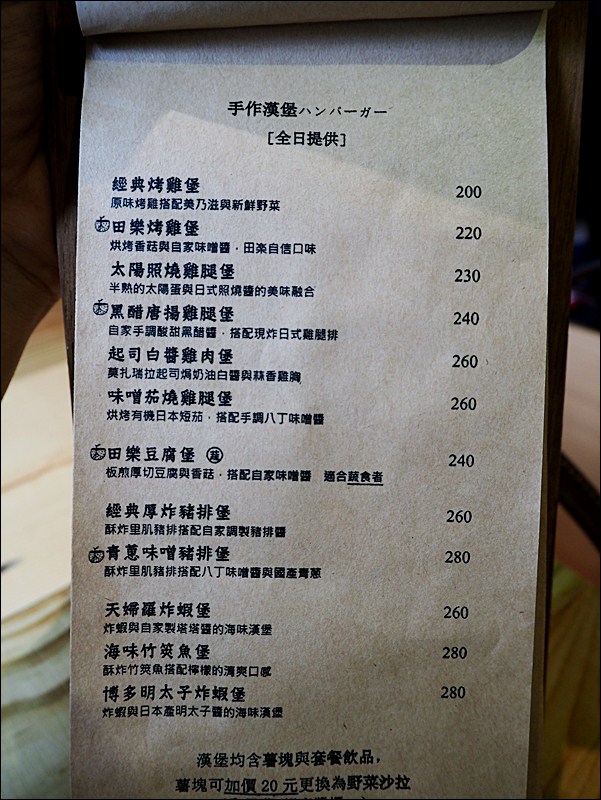 手作漢堡ハンバーガー
[全日提供]
經典烤雞堡 200
原味烤雞搭配美乃滋與新鮮野菜
田樂烤雞堡 220
烘烤香菇與自家味噌醬，田楽自信口味
太陽照燒雞腿堡 230
半熟的太陽蛋與日式照燒醬的美味融合
黑醋唐揚雞腿堡 240
自家手調酸甜黑醋醬，搭配現炸日式雞腿排
起司白醬雞肉堡 260
莫扎瑞拉起司焗奶油白醬與蒜香雞胸
味噌茄燒雞腿堡 260
烘烤有機日本短茄，搭配手調八丁味噌醬
田樂豆腐堡 蔬 240
板煎厚切豆腐與香菇，搭配自家味噌醬 適合蔬食者
經典厚炸豬排堡 260
酥炸里肌豬排搭配自家調製豬排醬
青蔥味噌豬排堡 280
酥炸里肌豬排搭配八丁味噌醬與國產青蔥
天婦羅炸蝦堡 260
炸蝦與自家製塔塔醬的海味漢堡
海味竹筴魚堡 280
酥炸竹筴魚搭配檸檬的清爽口感
博多明太子炸蝦堡 280
炸蝦與日本產明太子醬的海味漢堡
漢堡均含薯塊與套餐飲品,
薯塊可加價 20 元更換為野菜沙拉